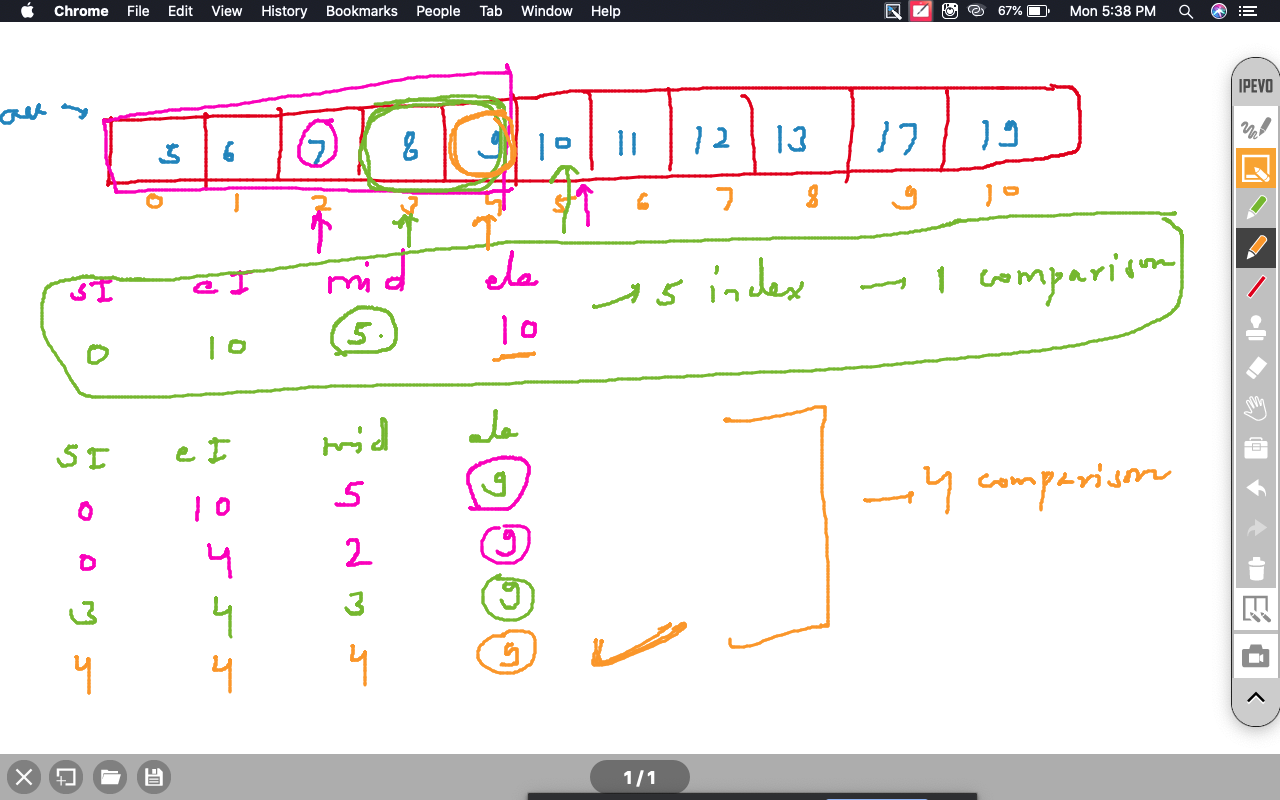 Chrome File Edit View History Bookmarks People Tab Window Help 67% Mon 5:38 PM
IPEVO
arr → 5 6 7 8 9 10 11 12 13 17 19
0 1 2 3 4 5 6 7 8 9 10
SI eI mid ele → 5 index → 1 comparison
0 10 5. 10
SI eI mid ele
0 10 5 9
0 4 2 9 → 4 comparison
3 4 3 9
4 4 4 9
1 / 1